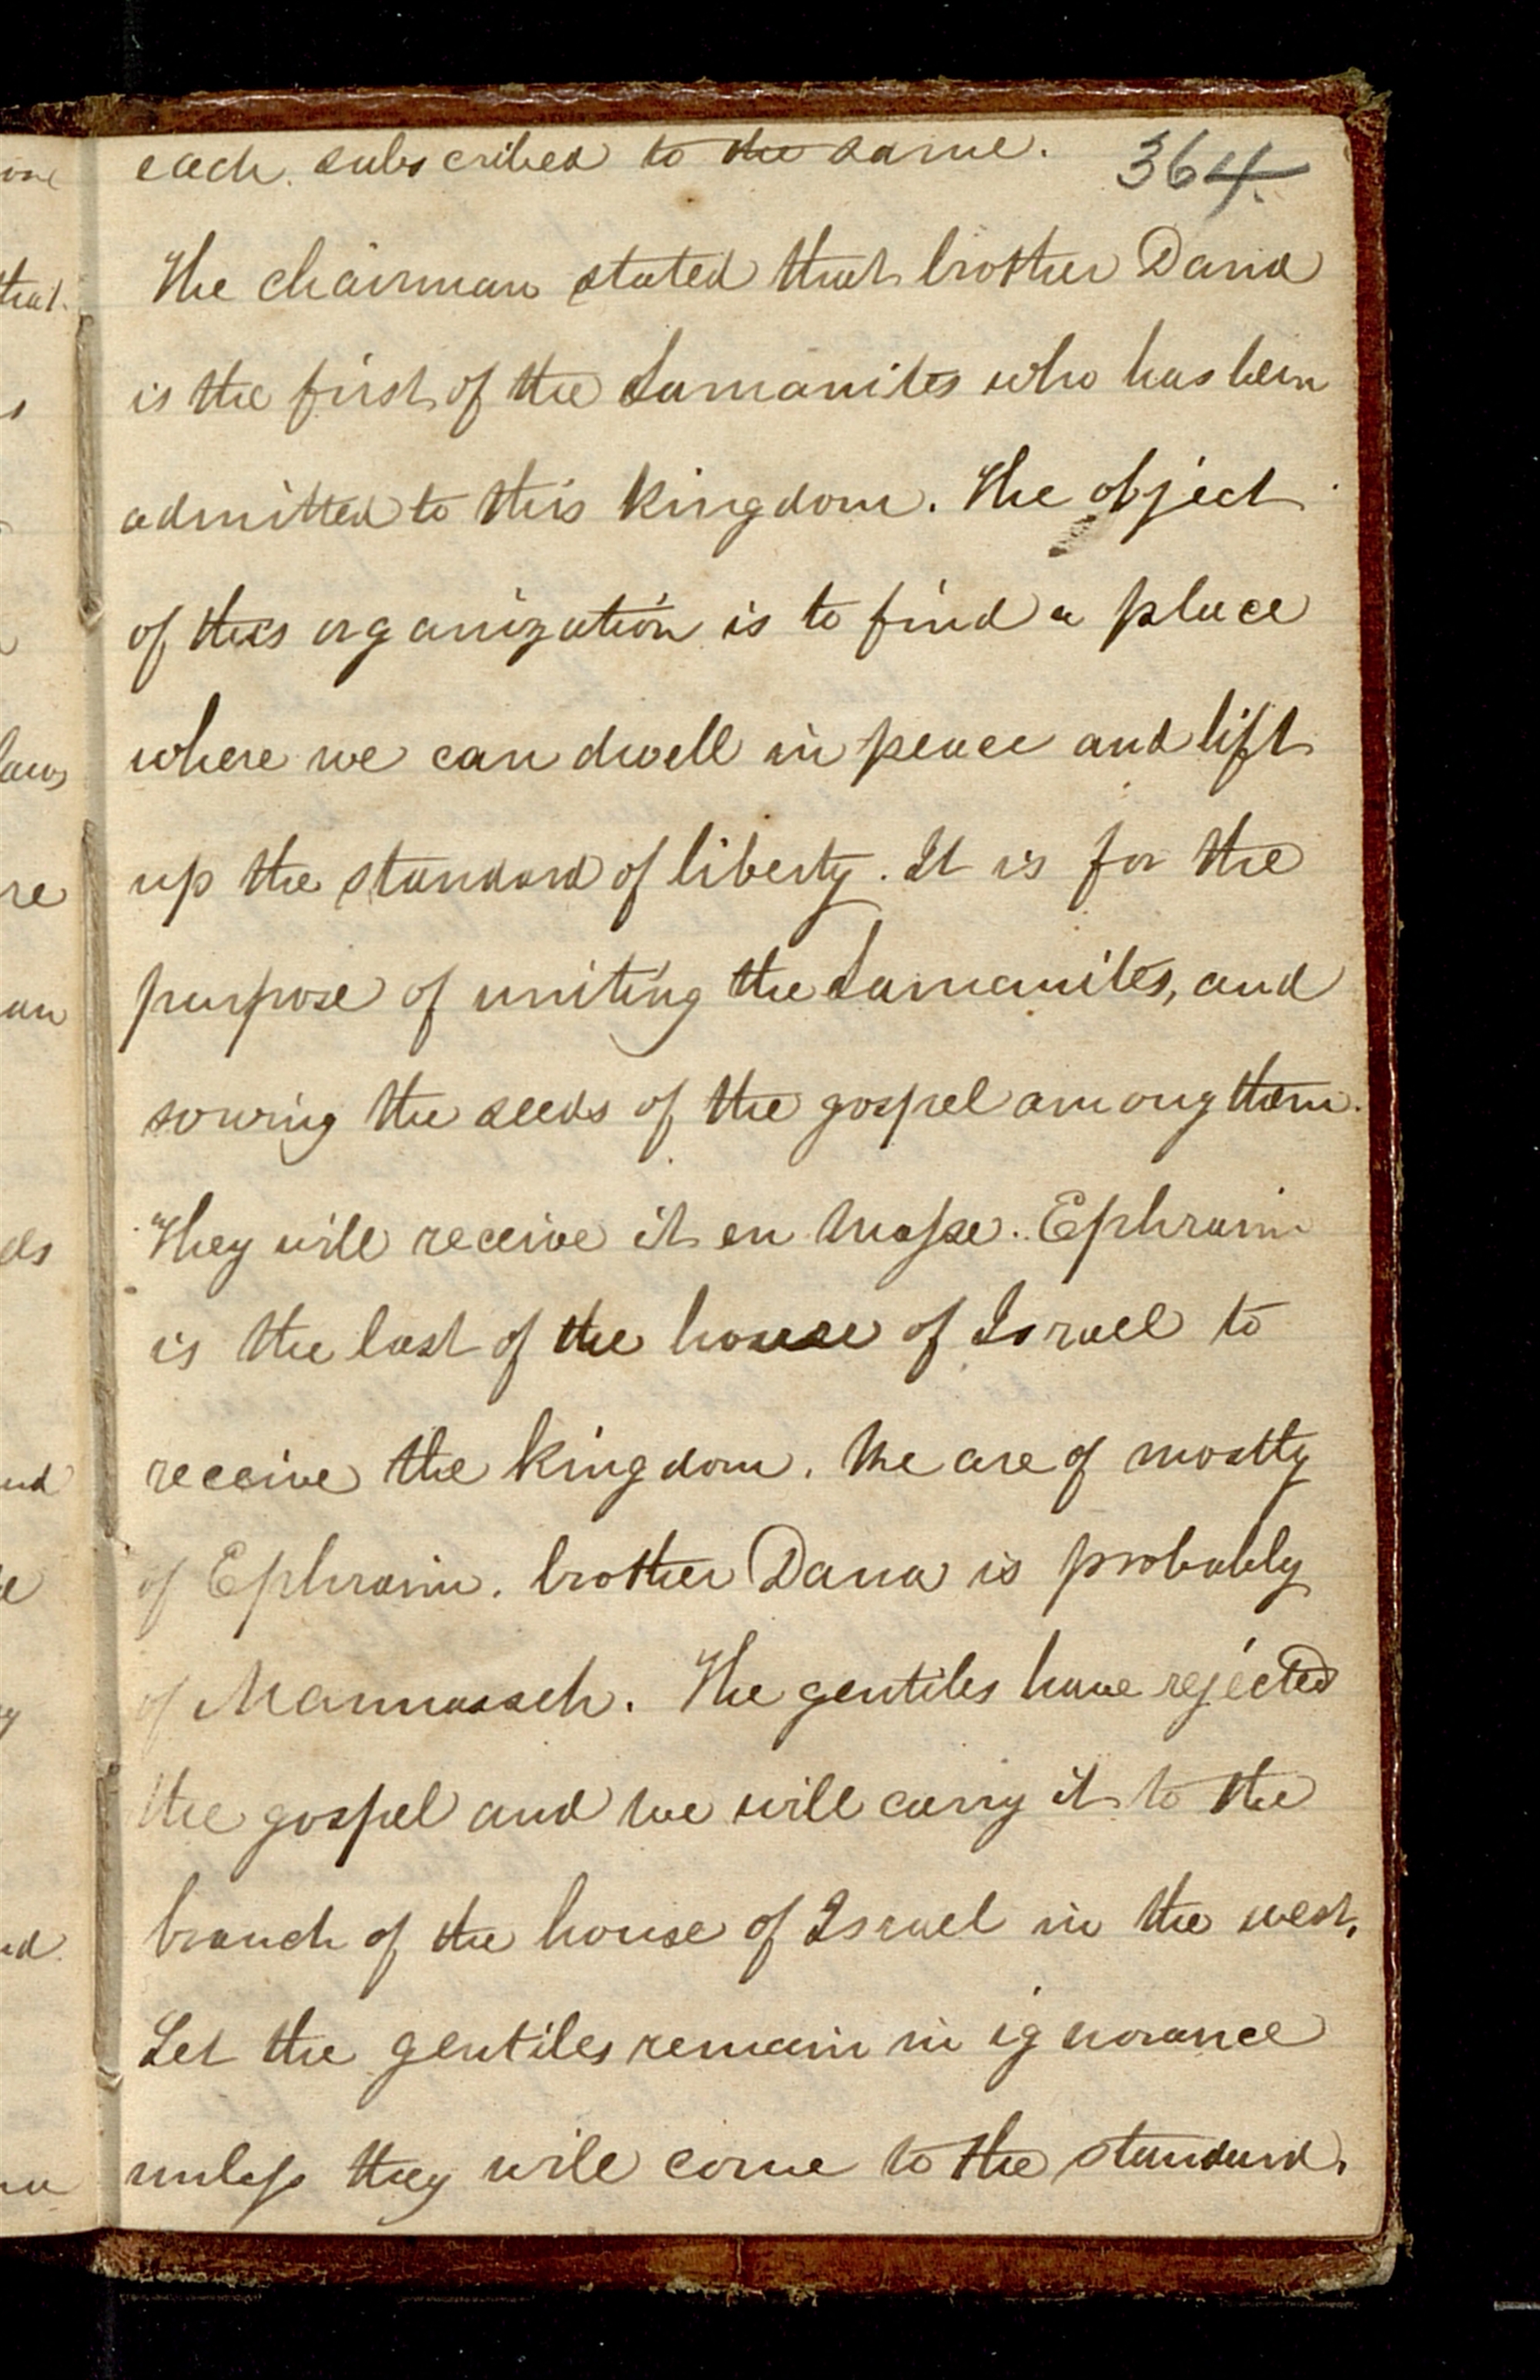 each subscribed to the same. 364.
The chairman stated that brother Dana
is the first of the Lamanites who has been
admitted to this kingdom. The object
of this organization is to find a place
where we can dwell in peace and lift
up the standard of liberty. It is for the
purpose of uniting the Lamanites, and
sowing the seeds of the gospel among them.
They will receive it en Masse. Ephraim
is the last of the house of Israel to
receive the kingdom. We are of mostly
of Ephraim. brother Dana is probably
of Mannasseh. The gentiles have rejected
the gospel and we will carry it to the
branch of the house of Israel in the west.
Let the gentiles remain in ignorance
unless they will come to the standard.